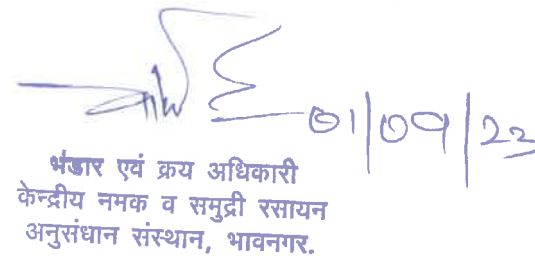 01/09/23
भंडार एवं क्रय अधिकारी
केन्द्रीय नमक व समुद्री रसायन
अनुसंधान संस्थान, भावनगर.